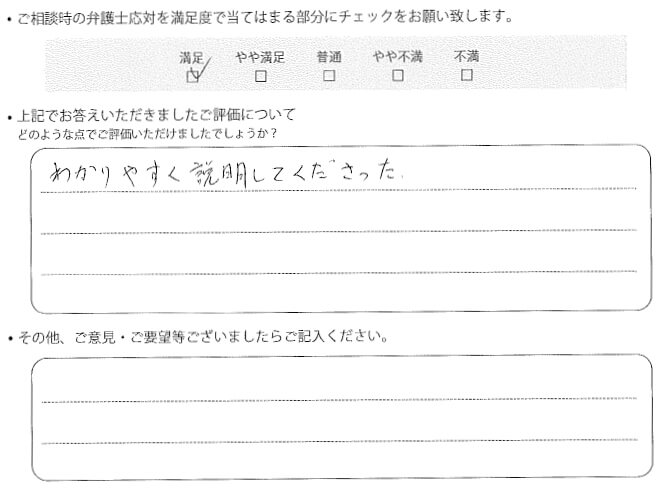 ・ご相談時の弁護士応対を満足度で当てはまる部分にチェックをお願い致します。
満足 やや満足 普通 やや不満 不満
☑ □ □ □ □
・上記でお答えいただきましたご評価について
どのような点でご評価いただけましたでしょうか？
わかりやすく説明してくださった.
・その他、ご意見・ご要望等ございましたらご記入ください。